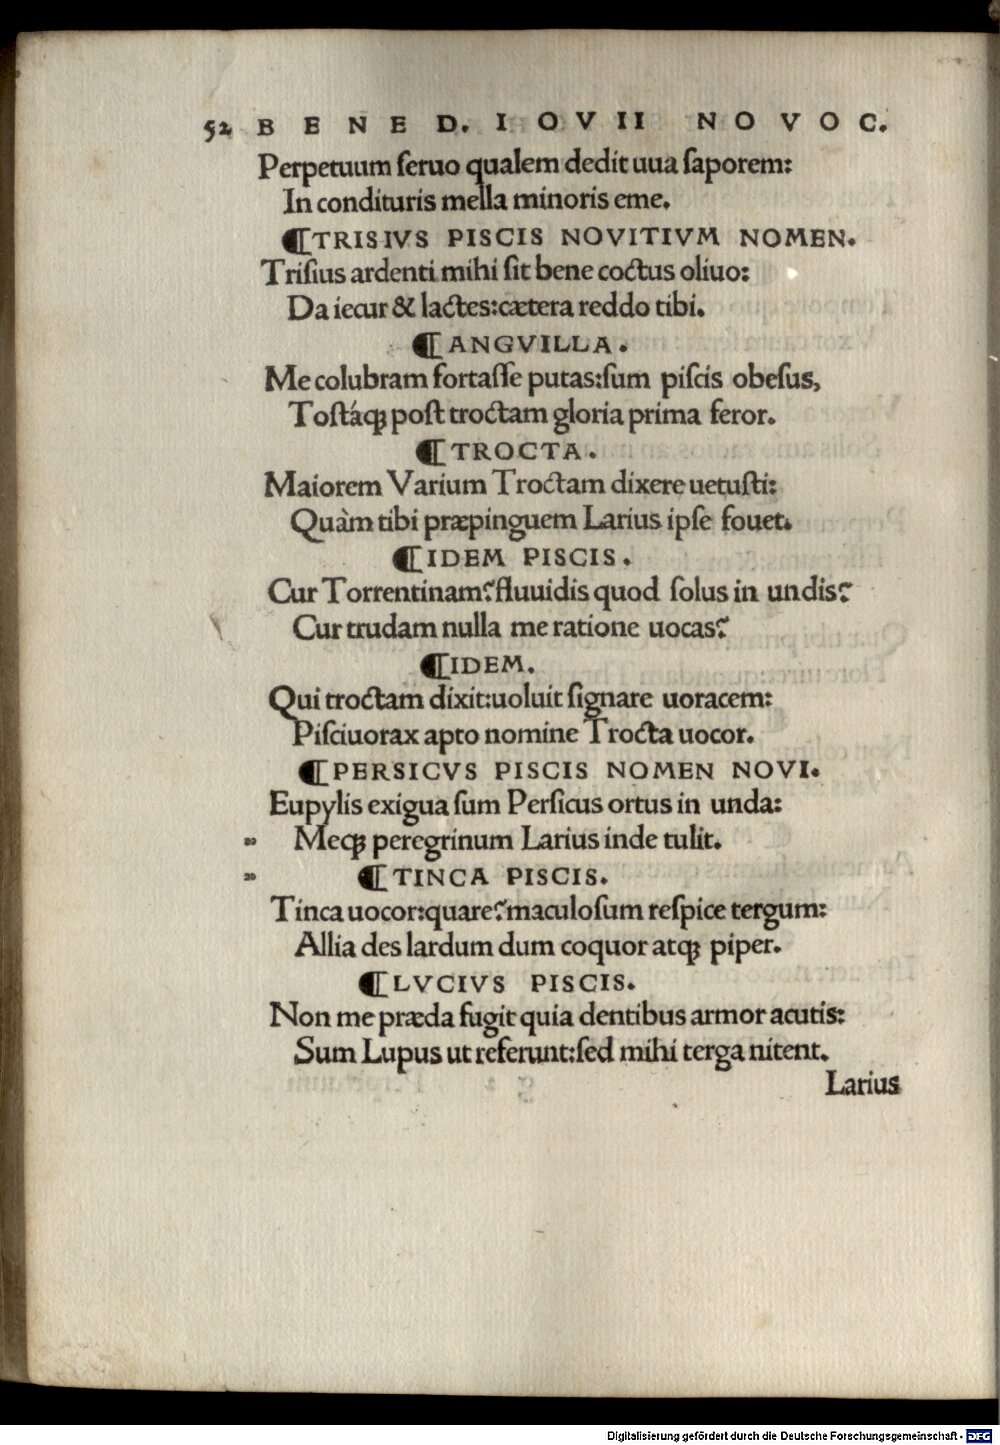 52 BENED. IOVII NOVOC.
Perpetuum ſeruo qualem dedit uua ſaporem:
In condituris mella minoris eme.
¶TRISIVS PISCIS NOVITIVM NOMEN.
Triſius ardenti mihi ſit bene coctus oliuo:
Da iecur & lactes:cætera reddo tibi.
¶ANGVILLA.
Me colubram fortaſſe putas:ſum piſcis obeſus,
Toſtáqꝫ poſt troctam gloria prima feror.
¶TROCTA.
Maiorem Varium Troctam dixere uetuſti:
Quàm tibi præpinguem Larius ipſe fouet.
¶IDEM PISCIS.
Cur Torrentinam?fluuidis quod ſolus in undis?
Cur trudam nulla me ratione uocas?
¶IDEM.
Qui troctam dixit:uoluit ſignare uoracem:
Piſciuorax apto nomine Trocta uocor.
¶PERSICVS PISCIS NOMEN NOVI.
Eupylis exigua ſum Perſicus ortus in unda:
Meqꝫ peregrinum Larius inde tulit.
¶TINCA PISCIS.
Tinca uocor:quare?maculoſum reſpice tergum:
Allia des lardum dum coquor atqꝫ piper.
¶LVCIVS PISCIS.
Non me præda fugit quia dentibus armor acutis:
Sum Lupus ut referunt:ſed mihi terga nitent.
Larius
Digitalisierung gefördert durch die Deutsche Forschungsgemeinschaft - DFG